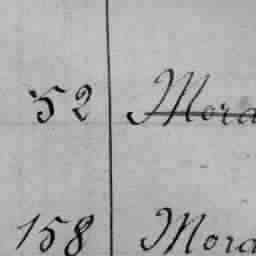 52 Mora
158 Mora